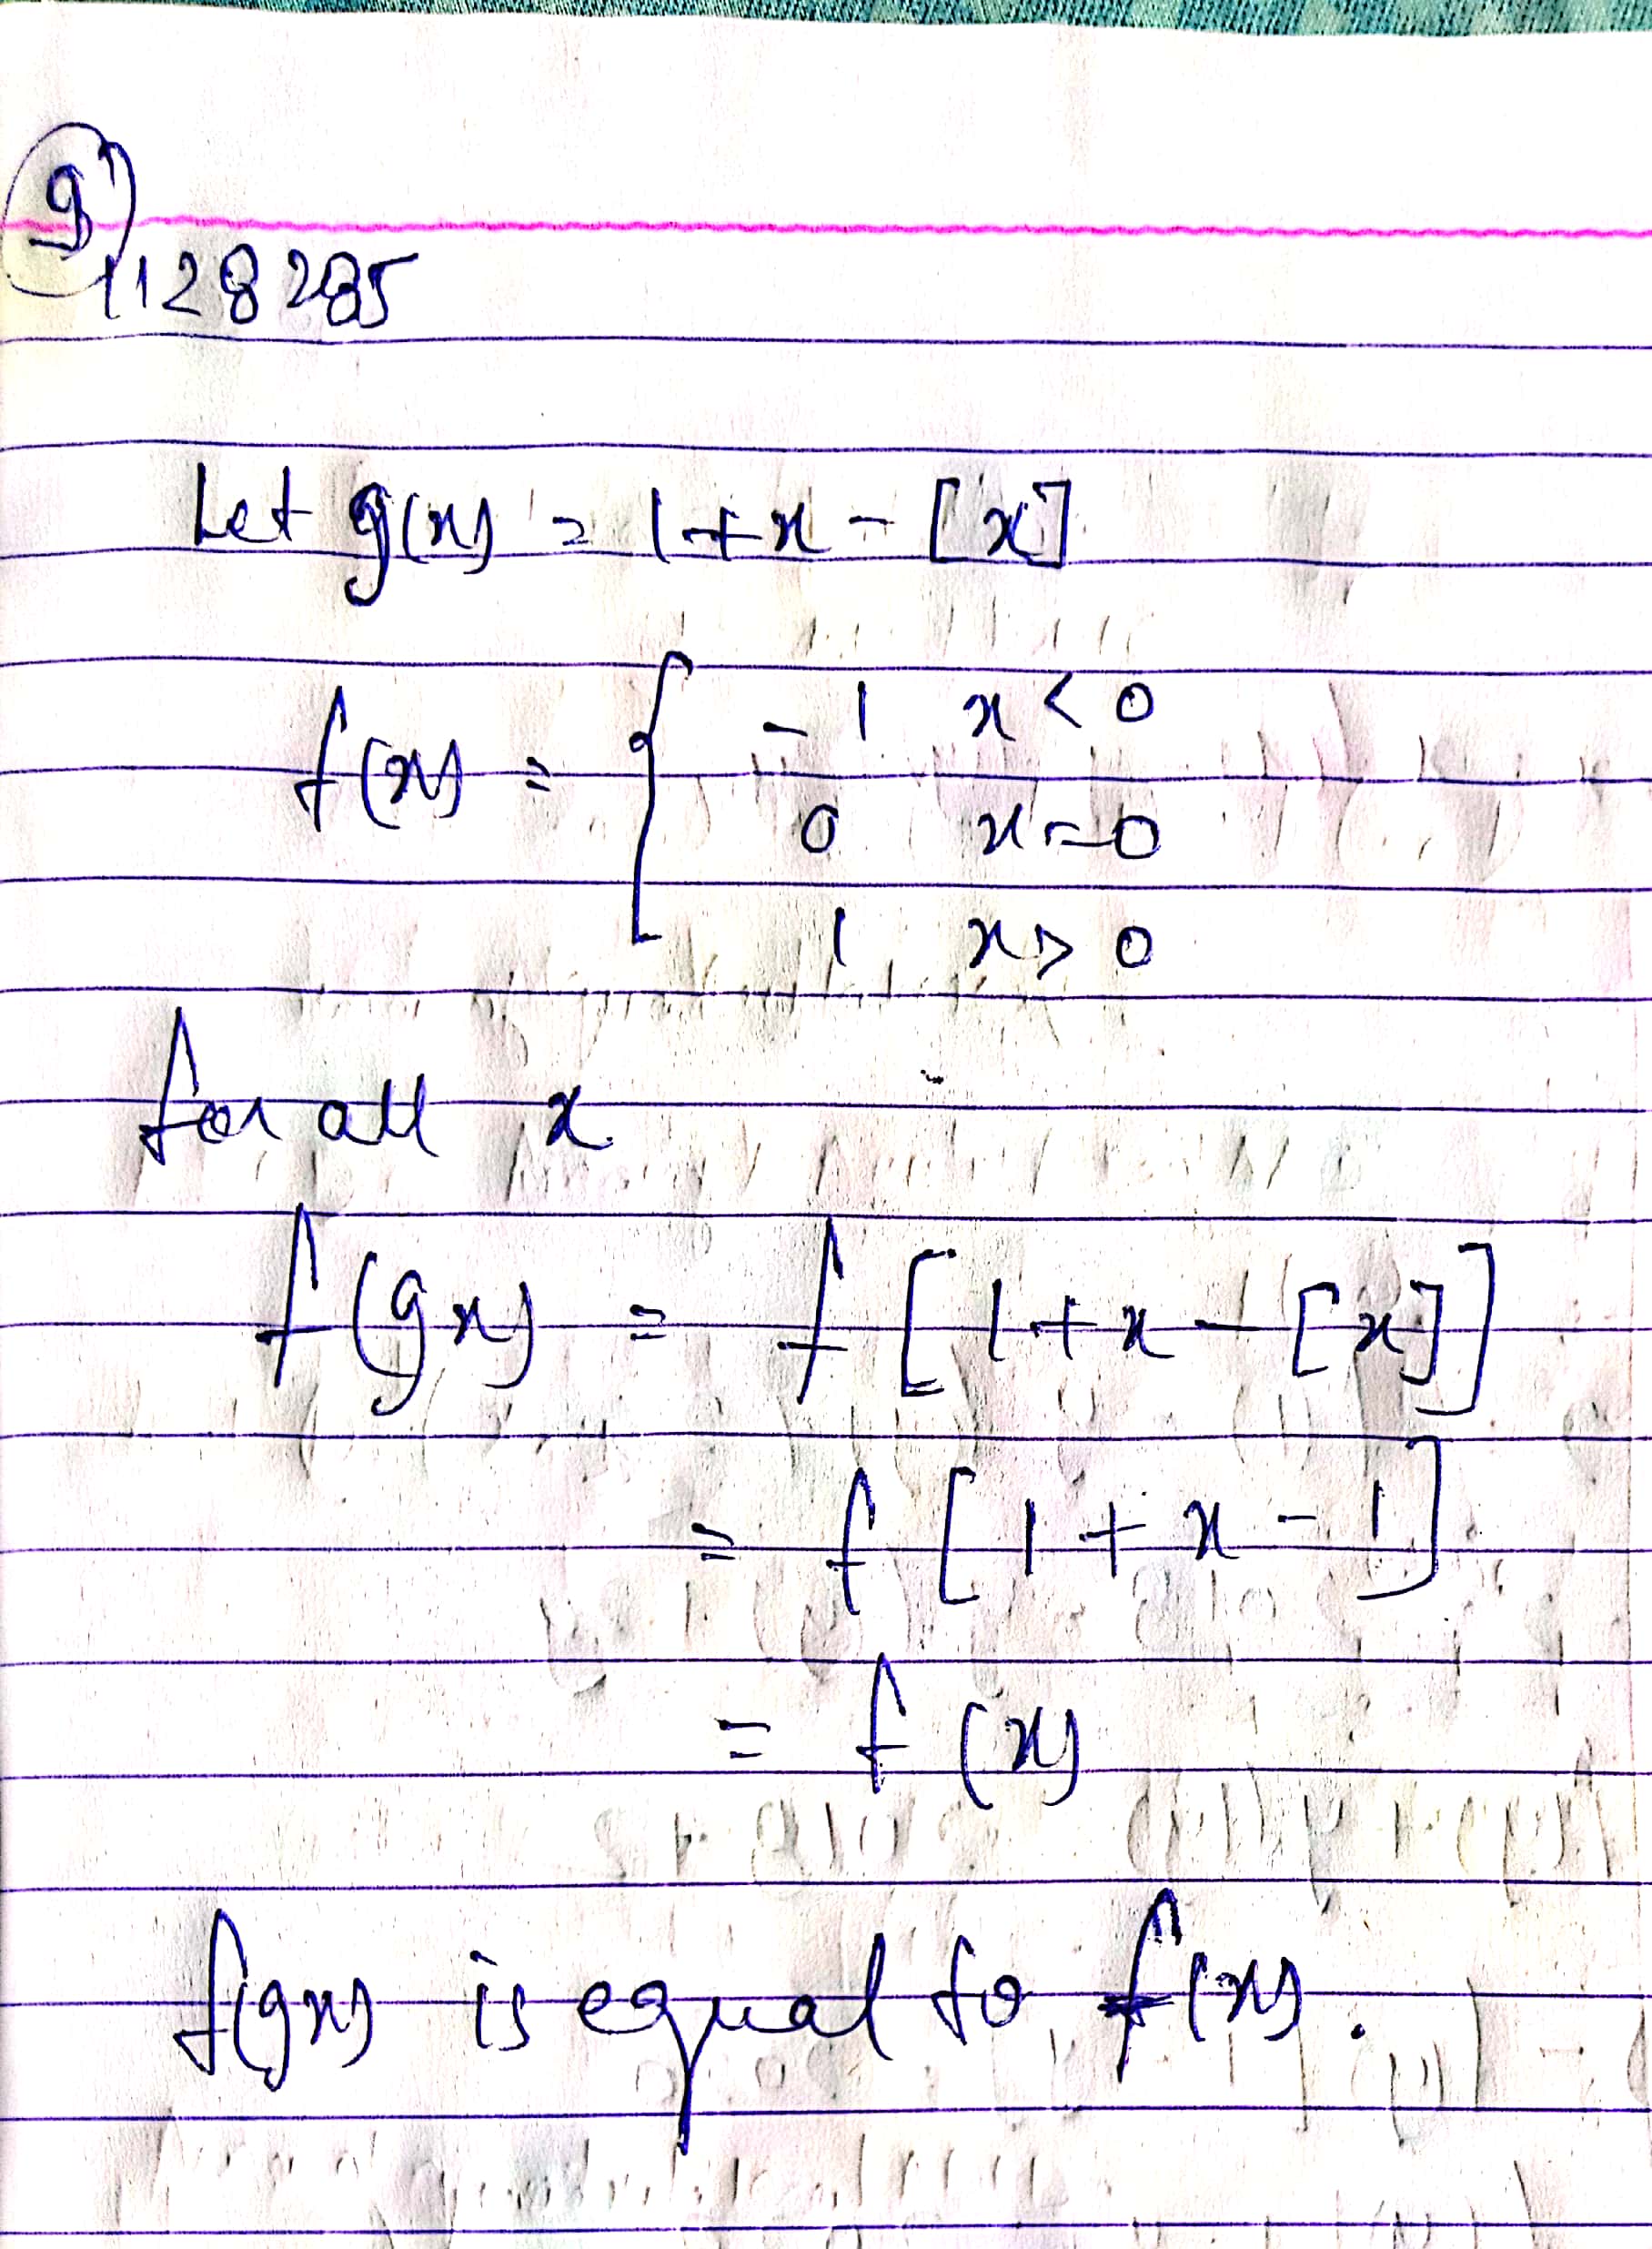 9)
1128285
Let g(x) = 1+x - [x]
f(x) = { -1 x < 0
0 x=0
1 x > 0
for all x
f(gx) = f[1+x - [x]]
= f[1+x-1]
= f(x)
f(gx) is equal to f(x).